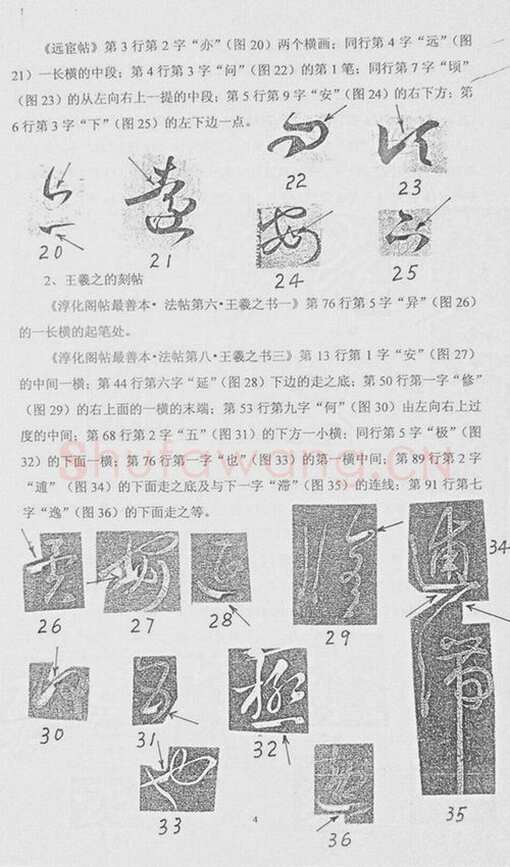 《远宦帖》第 3 行第 2 字“亦”（图 20）两个横画；同行第 4 字“远”（图
21）一长横的中段；第 4 行第 3 字“问”（图 22）的第 1 笔；同行第 7 字“顷”
（图 23）的从左向右上一提的中段；第 5 行第 9 字“安”（图 24）的右下方；第
6 行第 3 字“下”（图 25）的左下边一点。
20
21
22
23
24
25
2、王羲之的刻帖
《淳化阁帖最善本·法帖第六·王羲之书一》第 76 行第 5 字“异”（图 26）
的一长横的起笔处。
《淳化阁帖最善本·法帖第八·王羲之书三》第 13 行第 1 字“安”（图 27）
的中间一横；第 44 行第六字“延”（图 28）下边的走之底；第 50 行第一字“修”
（图 29）的右上面的一横的末端；第 53 行第九字“何”（图 30）由左向右上过
度的中间；第 68 行第 2 字“五”（图 31）的下方一小横；同行第 5 字“极”（图
32）的下面一横；第 76 行第一字“也”（图 33）的第一横中间；第 89 行第 2 字
“逋”（图 34）的下面走之底及与下一字“滞”（图 35）的连线；第 91 行第七
字“逸”（图 36）的下面走之等。
Shufawang.CN
26
27
28
29
34
30
31
32
33
36
35
4